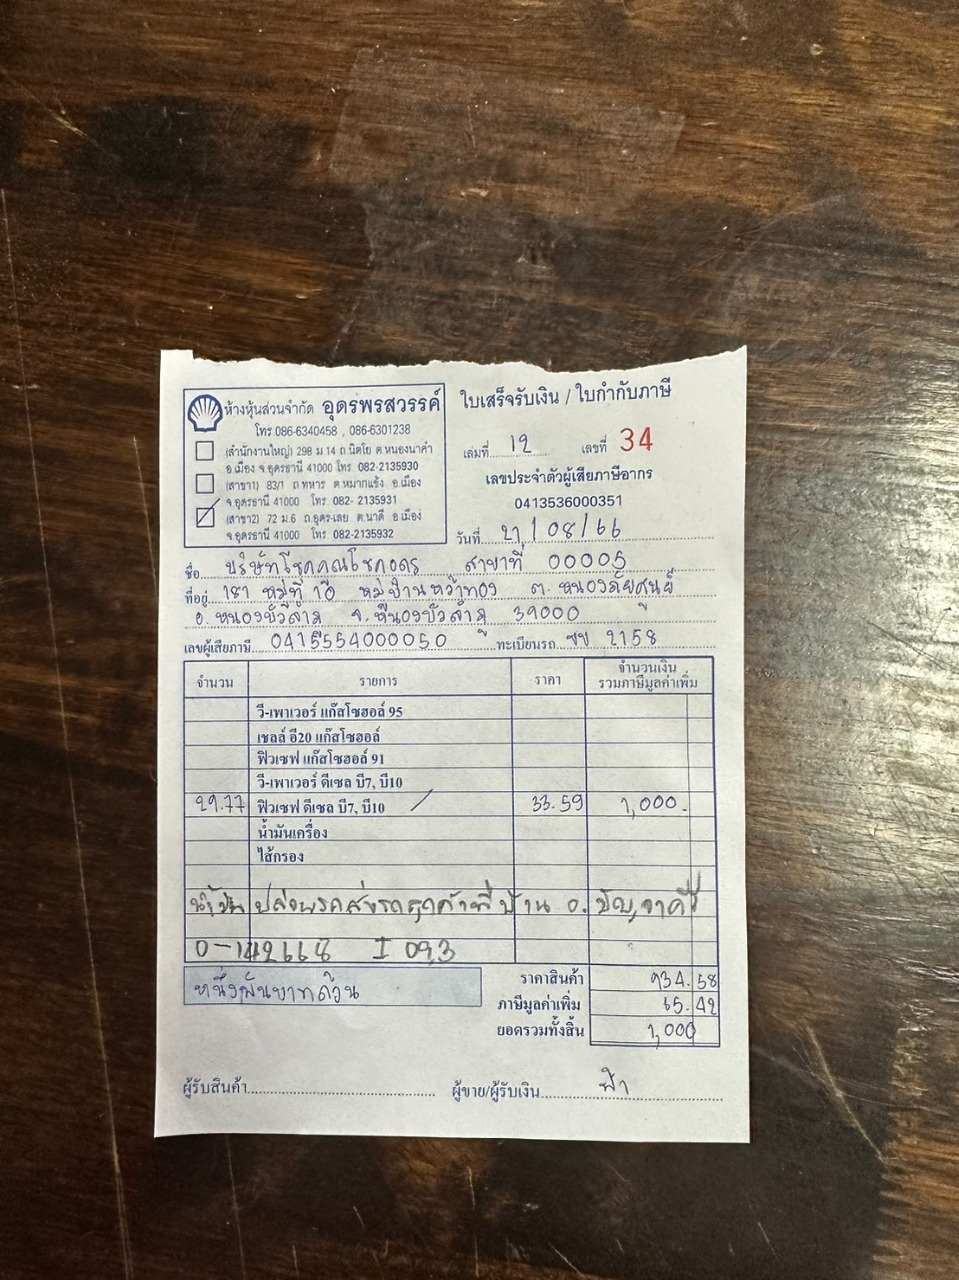 ห้างหุ้นส่วนจำกัด อุดรพรสวรรค์
โทร.086-6340458 , 086-6301238
(สำนักงานใหญ่) 298 ม 14 ถ.นิตโย ต.หนองนาคำ
อ.เมือง จ.อุดรธานี 41000 โทร 082-2135930
(สาขา1) 83/1 ถ.ทหาร ต.หมากแข้ง อ.เมือง
จ.อุดรธานี 41000 โทร 082- 2135931
(สาขา2) 72 ม.6 ถ.อุดร-เลย ต.นาดี อ.เมือง
จ.อุดรธานี 41000 โทร 082-2135932
ใบเสร็จรับเงิน / ใบกำกับภาษี
เล่มที่ 12 เลขที่ 34
เลขประจำตัวผู้เสียภาษีอากร
0413536000351
วันที่ 21/08/66
ชื่อ บริษัทโชคคูณโชคอุดร สาขาที่ 00005
ที่อยู่ 181 หมู่ที่ 10 หมู่บ้านหว้าทอง ต. หนองภัยศูนย์
อ. หนองบัวลำภู จ. หนองบัวลำภู 39000
เลขผู้เสียภาษี 0415554000050 ทะเบียนรถ ขข 2158
จำนวน รายการ ราคา จำนวนเงิน
รวมภาษีมูลค่าเพิ่ม
วี-เพาเวอร์ แก๊สโซฮอล์ 95
เชลล์ อี20 แก๊สโซฮอล์
ฟิวเซฟ แก๊สโซฮอล์ 91
วี-เพาเวอร์ ดีเซล บี7, บี10
29.77 ฟิวเซฟ ดีเซล บี7, บี10 / 33.59 1,000.-
น้ำมันเครื่อง
ไส้กรอง
ส่งรถลูกค้าที่บ้าน อ.
0-142668 I 093
หนึ่งพันบาทถ้วน
ราคาสินค้า 934.58
ภาษีมูลค่าเพิ่ม 65.42
ยอดรวมทั้งสิ้น 1,000
ผู้รับสินค้า ผู้ขาย/ผู้รับเงิน ฟ้า